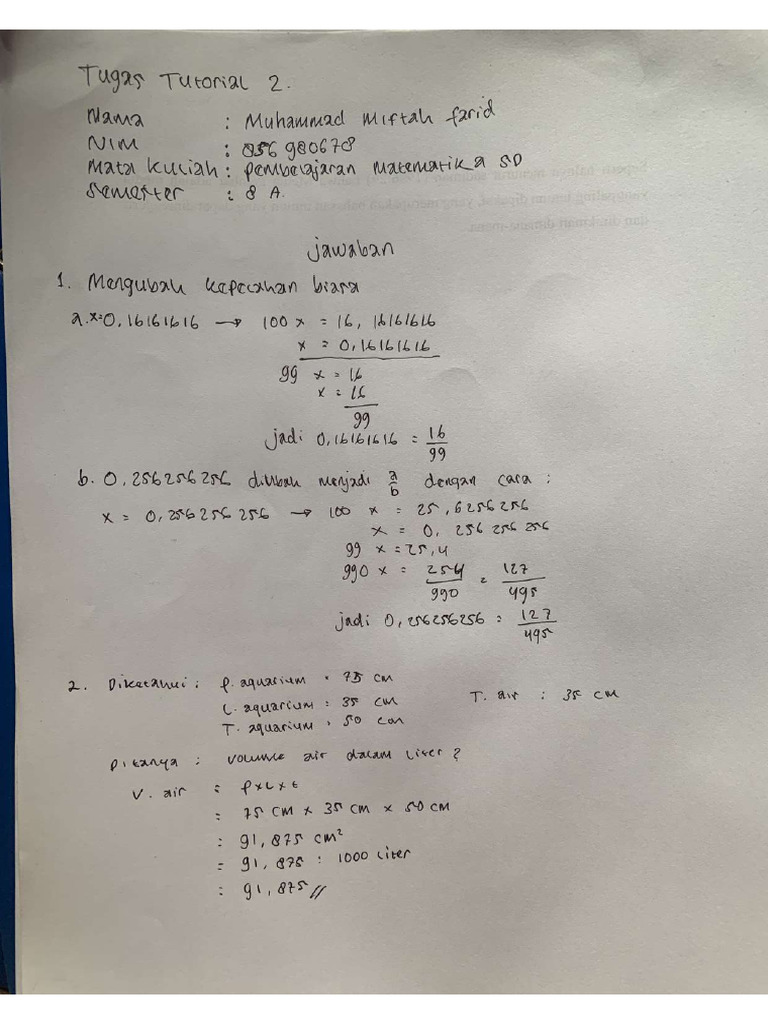 Tugas Tutorial 2.
Nama : Muhammad Miftah farid
NIM : 056980678
Mata Kuliah : Pembelajaran Matematika SD
Semester : 8 A.
Jawaban
1. Mengubah kepecahan biasa
a. x = 0,16161616 → 100 x = 16, 16161616
x = 0,16161616
99 x = 16
x = 16
99
jadi 0,16161616 = 16/99
b. 0,256256256 diubah menjadi a/b dengan cara :
x = 0,256256256 → 100 x = 25,6256256
x = 0, 256 256 256
99 x = 25,4
990 x = 254/990 = 127/495
jadi 0,256256256 = 127/495
2. Diketahui : P. aquarium = 75 cm
L. aquarium = 35 cm T. air : 35 cm
T. aquarium = 50 cm
Ditanya : volume air dalam liter ?
V. air = p x l x t
= 75 cm x 35 cm x 50 cm
= 91,875 cm²
= 91,875 : 1000 liter
= 91,875 //